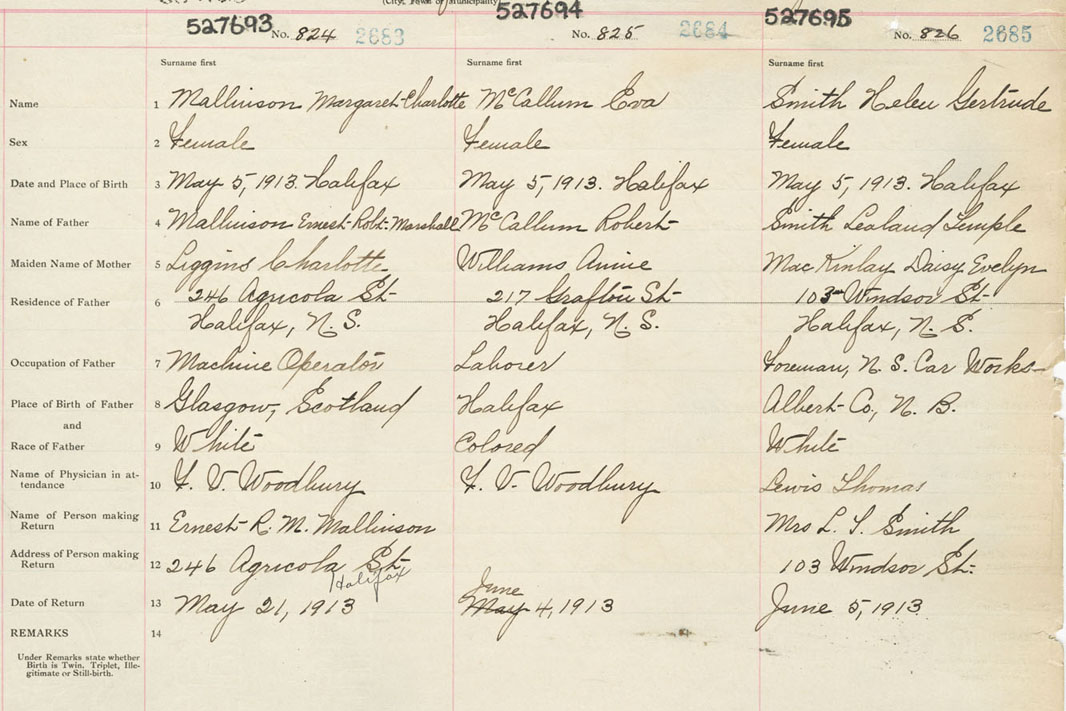 (City, Town or Municipality)
527693 527694 527695
No. 824 2683 No. 825 2684 No. 826 2685
Surname first Surname first Surname first
Name 1 Mallinson Margaret Charlotte McCallum Eva Smith Helen Gertrude
Sex 2 Female Female Female
Date and Place of Birth 3 May 5, 1913. Halifax May 5, 1913. Halifax May 5, 1913. Halifax
Name of Father 4 Mallinson Ernest Robt. Marshall McCallum Robert Smith Lealand Temple
Maiden Name of Mother 5 Liggins Charlotte Williams Annie MacKinlay Daisy Evelyn
Residence of Father 6 246 Agricola St. 217 Grafton St. 103 Windsor St.
Halifax, N.S. Halifax, N.S. Halifax, N.S.
Occupation of Father 7 Machine Operator Laborer Foreman, N.S. Car Works
Place of Birth of Father 8 Glasgow, Scotland Halifax Albert Co., N.B.
and
Race of Father 9 White Colored White
Name of Physician in at-
tendance 10 F. V. Woodbury F. V. Woodbury Lewis Thomas
Name of Person making
Return 11 Ernest R. M. Mallinson Mrs L. T. Smith
Address of Person making
Return 12 246 Agricola St. 103 Windsor St.
Halifax
June
Date of Return 13 May 21, 1913 May 4, 1913 June 5, 1913
REMARKS 14
Under Remarks state whether
Birth is Twin, Triplet, Ille-
gitimate or Still-birth.